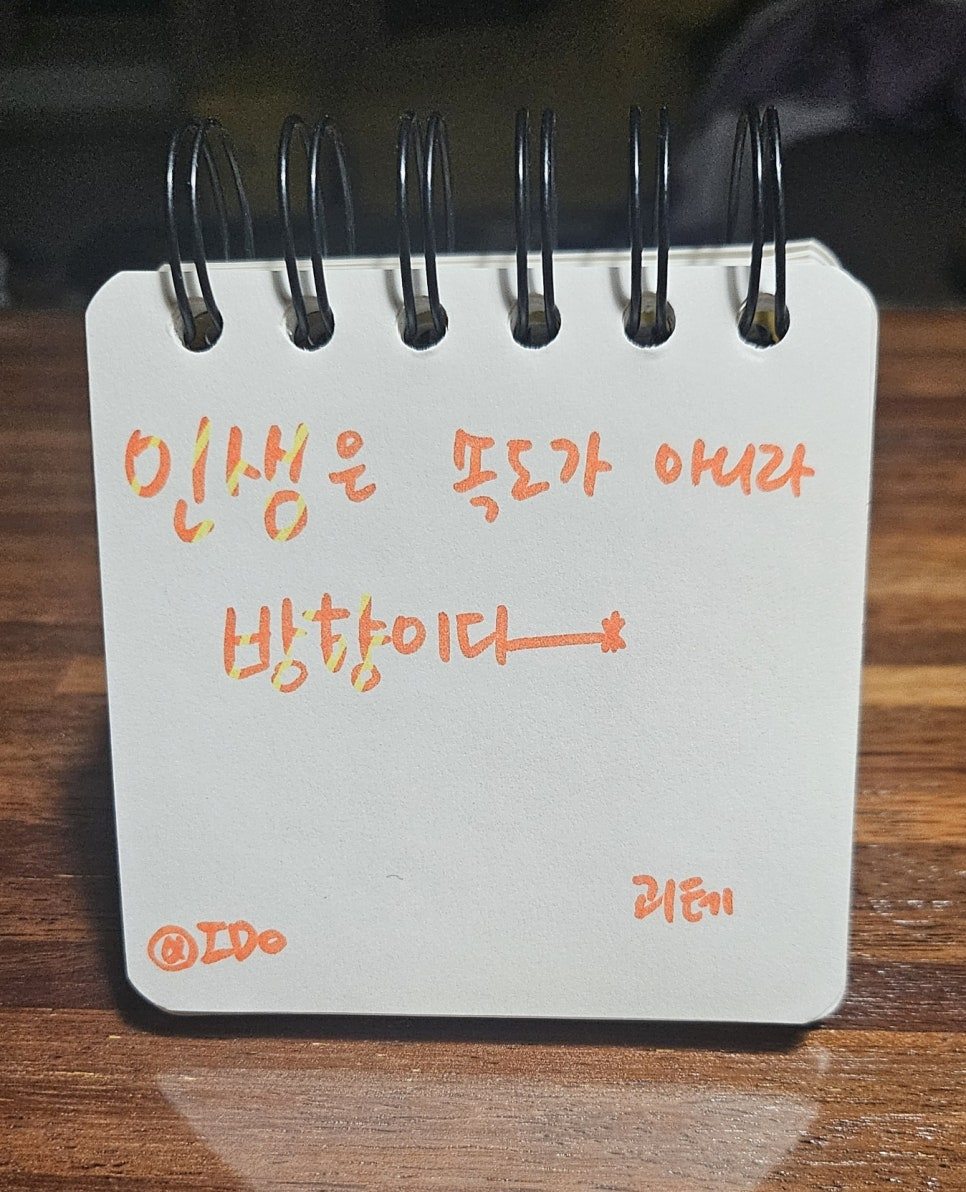 인생은 속도가 아니라
방향이다
괴테
@IDo